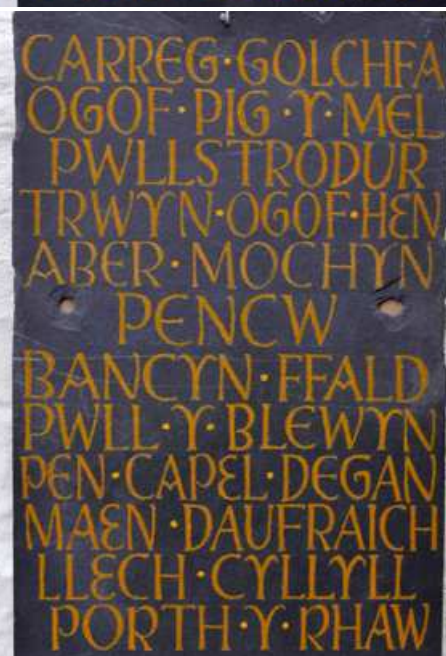 CARREG·GOLCHFA
OGOF·PIG·Y·MEL
PWLLSTRODUR
TRWYN·OGOF·HEN
ABER·MOCHYN
PENCW
BANCYN·FFALD
PWLL·Y·BLEWYN
PEN·CAPEL·DEGAN
MAEN·DAUFRAICH
LLECH·CYLLYLL
PORTH·Y·RHAW